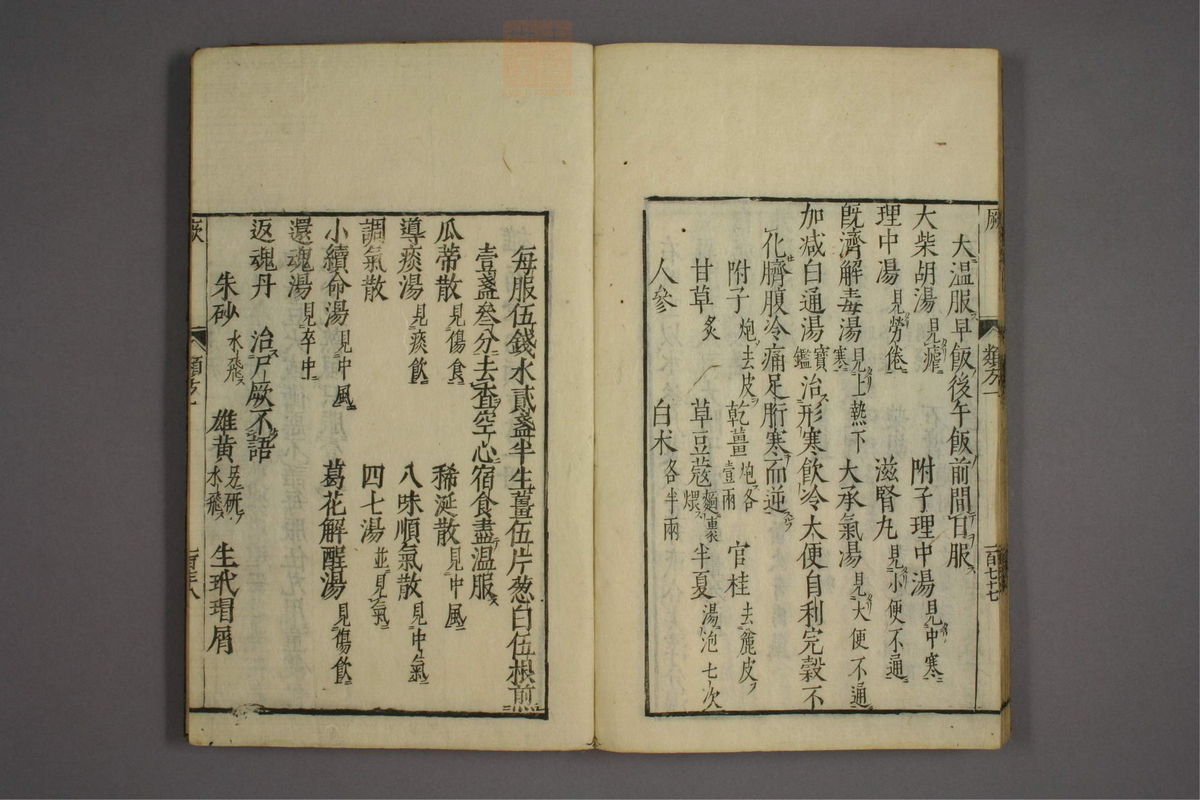 厥
類方一
一百七十七
大温服早飯後午飯前間日服
大柴胡湯 見瘧 附子理中湯 見中寒
理中湯 見勞倦 滋腎丸 見小便不通
既濟解毒湯 見上熱下寒 大承氣湯 見大便不通
加减白通湯 寶鑑 治形寒飲冷大便自利完穀不
化臍腹冷痛足胻寒而逆
附子 炮去皮 乾薑 炮各壹兩 官桂 去麄皮
甘草 炙 草豆蔻 麵裹煨 半夏 湯泡七次
人參 白朮 各半兩
每服伍錢水貳盞半生薑伍片葱白伍根煎
壹盞叁分去查空心宿食盡温服
瓜蒂散 見傷食 稀涎散 見中風
導痰湯 見痰飲 八味順氣散 見中氣
調氣散 四七湯 並見氣
小續命湯 見中風 葛花解醒湯 見傷飲
還魂湯 見卒中
返魂丹 治尸厥不語
朱砂 水飛 雄黃 另研水飛 生玳瑁屑
厥
類方一